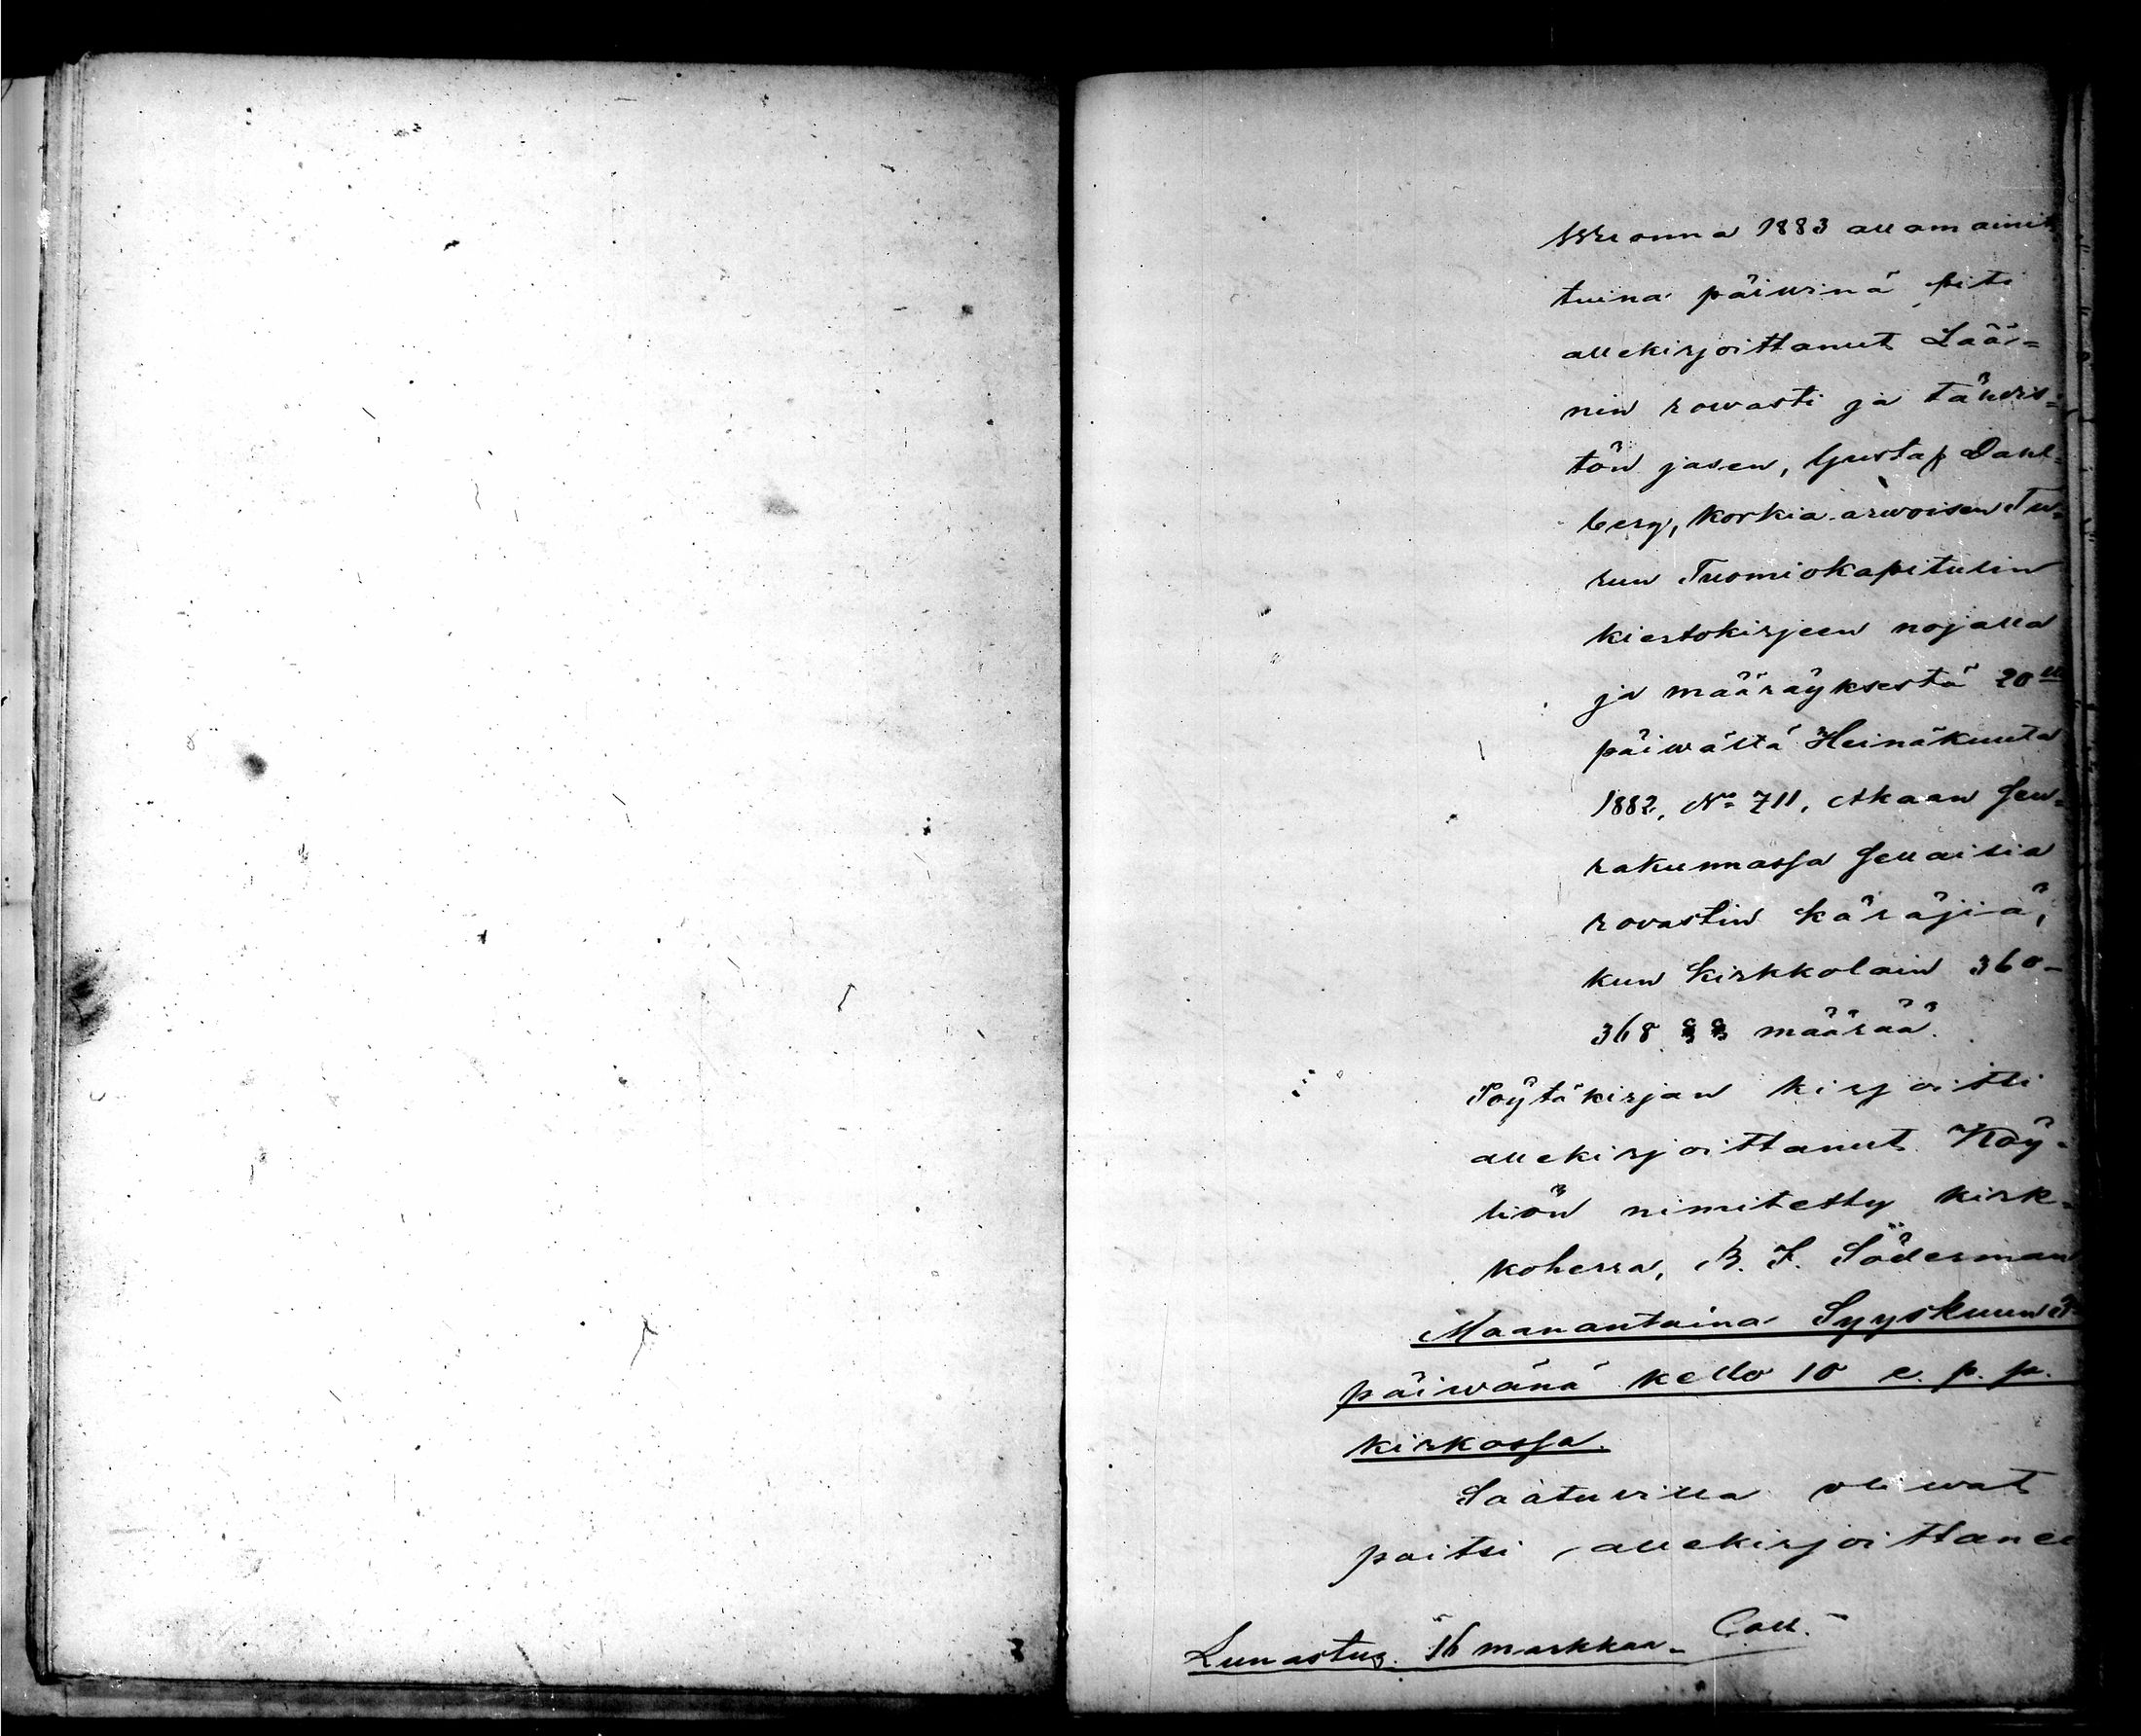 Wuonna 1883 allamainit
tuina päiwinä piti
allekirjoittanut Lää-
nin rowasti ja tähdis-
tön jäsen, Gustaf Dahl-
berg, Korkia-arwoisen Tu-
run Tuomiokapitulin
kiertokirjeen nojalla
ja määräyksestä 20
päiwältä Heinäkuuta
1882, No 711, Akaan seu-
rakunnassa sellaisia
rovastin käräjiä,
kun Kirkkolain 360-
368 §§ määrää.
Pöytäkirjan kirjoitti
allekirjoittanut Köy-
liön nimitetty kirk-
koherra, B. F. Söderman
Maanantaina Syyskuun
päiwänä kello 10 e. p. p.
kirkossa.
Saatuvilla oliwat
paitsi allekirjoittanee
Lunastus 16 markkaa. Coll.